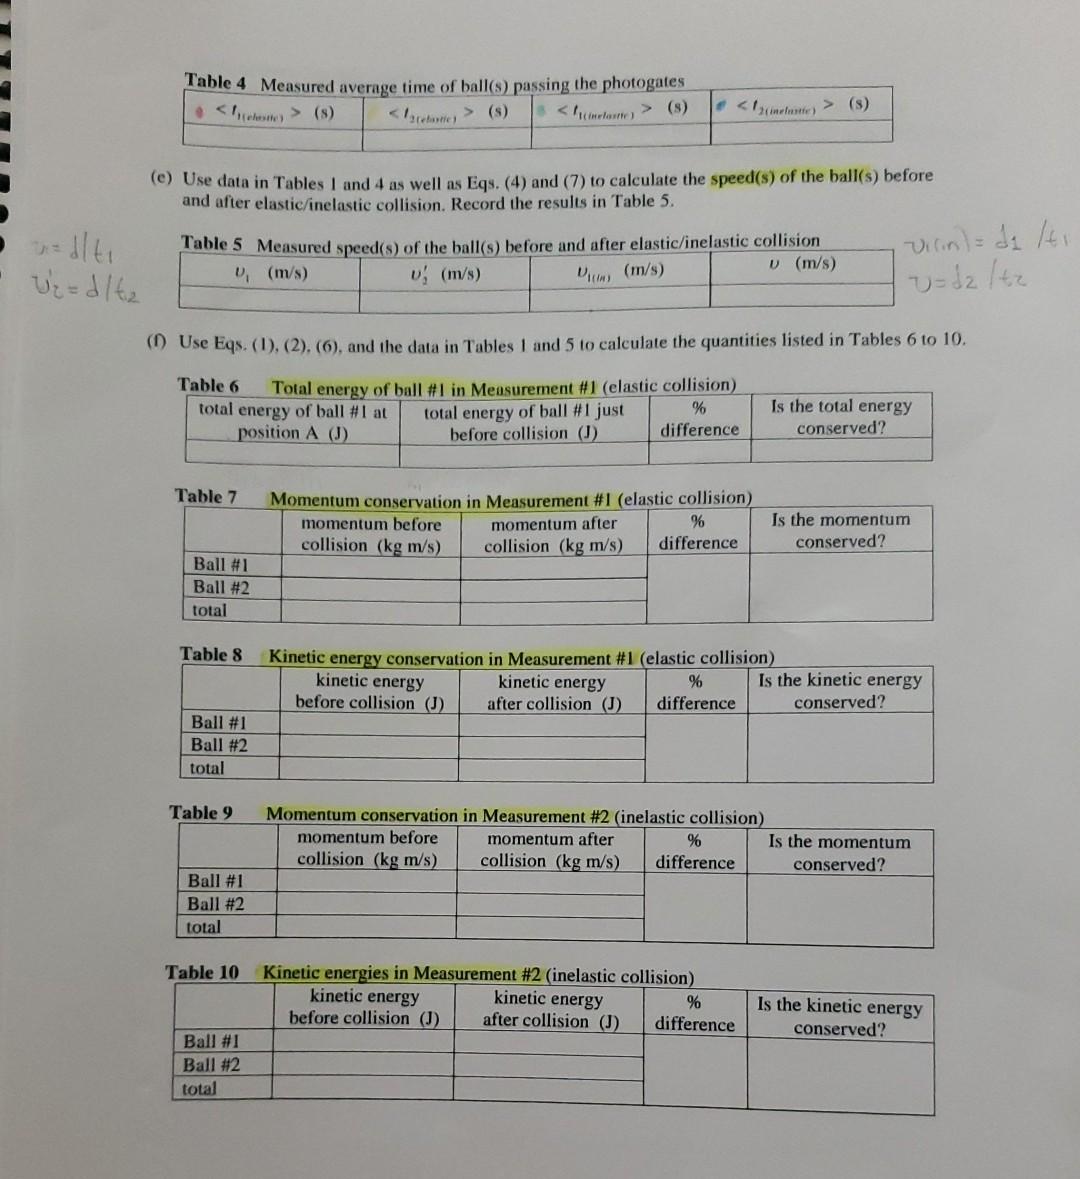 Table 4 Measured average time of ball(s) passing the photogates
< t1(elastic) > (s) < t2(elastic) > (s) < t1(inelastic) > (s) < t2(inelastic) > (s)
(e) Use data in Tables 1 and 4 as well as Eqs. (4) and (7) to calculate the speed(s) of the ball(s) before
and after elastic/inelastic collision. Record the results in Table 5.
Table 5 Measured speed(s) of the ball(s) before and after elastic/inelastic collision
υ1 (m/s) υ′2 (m/s) υ1(in) (m/s) υ (m/s)
υ1 = d/t1
υ′2 = d/t2
υ1(in) = d1 /t1
υ = d2 /t2
(f) Use Eqs. (1), (2), (6), and the data in Tables 1 and 5 to calculate the quantities listed in Tables 6 to 10.
Table 6 Total energy of ball #1 in Measurement #1 (elastic collision)
total energy of ball #1 at total energy of ball #1 just % Is the total energy
position A (J) before collision (J) difference conserved?
Table 7 Momentum conservation in Measurement #1 (elastic collision)
momentum before momentum after % Is the momentum
collision (kg m/s) collision (kg m/s) difference conserved?
Ball #1
Ball #2
total
Table 8 Kinetic energy conservation in Measurement #1 (elastic collision)
kinetic energy kinetic energy % Is the kinetic energy
before collision (J) after collision (J) difference conserved?
Ball #1
Ball #2
total
Table 9 Momentum conservation in Measurement #2 (inelastic collision)
momentum before momentum after % Is the momentum
collision (kg m/s) collision (kg m/s) difference conserved?
Ball #1
Ball #2
total
Table 10 Kinetic energies in Measurement #2 (inelastic collision)
kinetic energy kinetic energy % Is the kinetic energy
before collision (J) after collision (J) difference conserved?
Ball #1
Ball #2
total